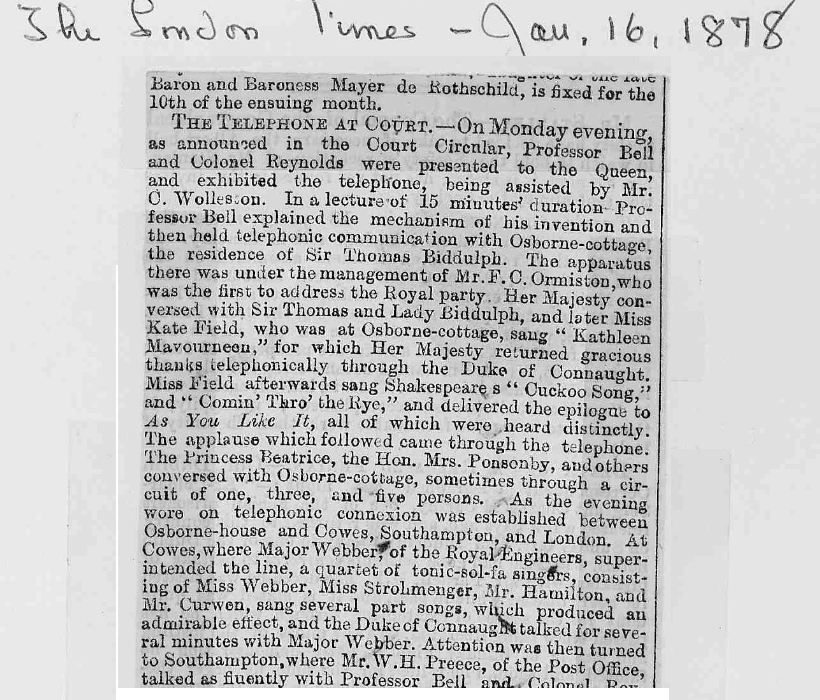 The London Times - Jan. 16, 1878
daughter of the late
Baron and Baroness Mayer de Rothschild, is fixed for the
10th of the ensuing month.
THE TELEPHONE AT COURT.—On Monday evening,
as announced in the Court Circular, Professor Bell
and Colonel Reynolds were presented to the Queen,
and exhibited the telephone, being assisted by Mr.
C. Wolleson. In a lecture of 15 minutes' duration Pro-
fessor Bell explained the mechanism of his invention and
then held telephonic communication with Osborne-cottage,
the residence of Sir Thomas Biddulph. The apparatus
there was under the management of Mr. F. C. Ormiston, who
was the first to address the Royal party. Her Majesty con-
versed with Sir Thomas and Lady Biddulph, and later Miss
Kate Field, who was at Osborne-cottage, sang " Kathleen
Mavourneen," for which Her Majesty returned gracious
thanks telephonically through the Duke of Connaught.
Miss Field afterwards sang Shakespeare s " Cuckoo Song,"
and " Comin' Thro' the Rye," and delivered the epilogue to
As You Like It, all of which were heard distinctly.
The applause which followed came through the telephone.
The Princess Beatrice, the Hon. Mrs. Ponsonby, and others
conversed with Osborne-cottage, sometimes through a cir-
cuit of one, three, and five persons. As the evening
wore on telephonic connexion was established between
Osborne-house and Cowes, Southampton, and London. At
Cowes, where Major Webber, of the Royal Engineers, super-
intended the line, a quartet of tonic-sol-fa singers, consist-
ing of Miss Webber, Miss Strohmenger, Mr. Hamilton, and
Mr. Curwen, sang several part songs, which produced an
admirable effect, and the Duke of Connaught talked for seve-
ral minutes with Major Webber. Attention was then turned
to Southampton, where Mr. W. H. Preece, of the Post Office,
talked as fluently with Professor Bell and Colonel Rey-